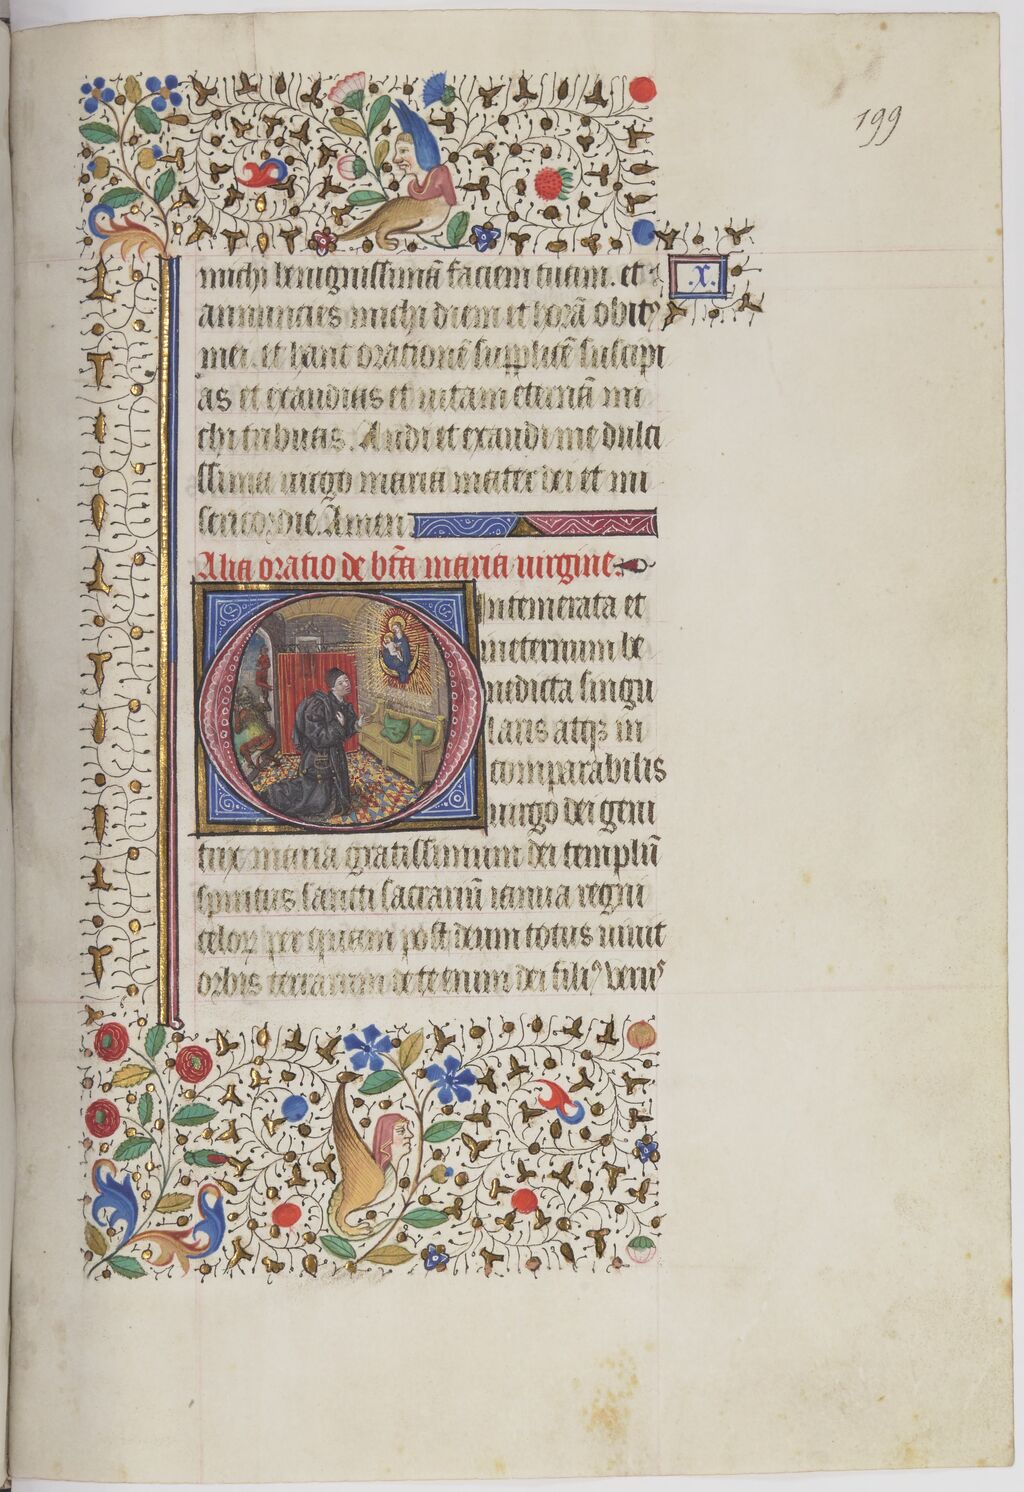 199
michi benignissimā faciem tuam. et
.x.
annuncies michi diem et horā obitꝰ
mei. et hanc orationē supplicē suscipi
as et exaudias et uitam eternā mi
chi tribuas. Audi et exaudi me dulci
ssima uirgo maria mater dei et mi
sericordie. Amen.
Alia oratio de bt̄a maria uirgine.
O intemerata et
ineternum be
nedicta singu
laris atqꝫ in
comparabilis
uirgo dei geni
trix maria gratissimum dei templū
spiritus sancti sacrariū ianua regni
celoꝝ per quam post deum totus uiuit
orbis terrarum de te enim dei filiꝰ verus